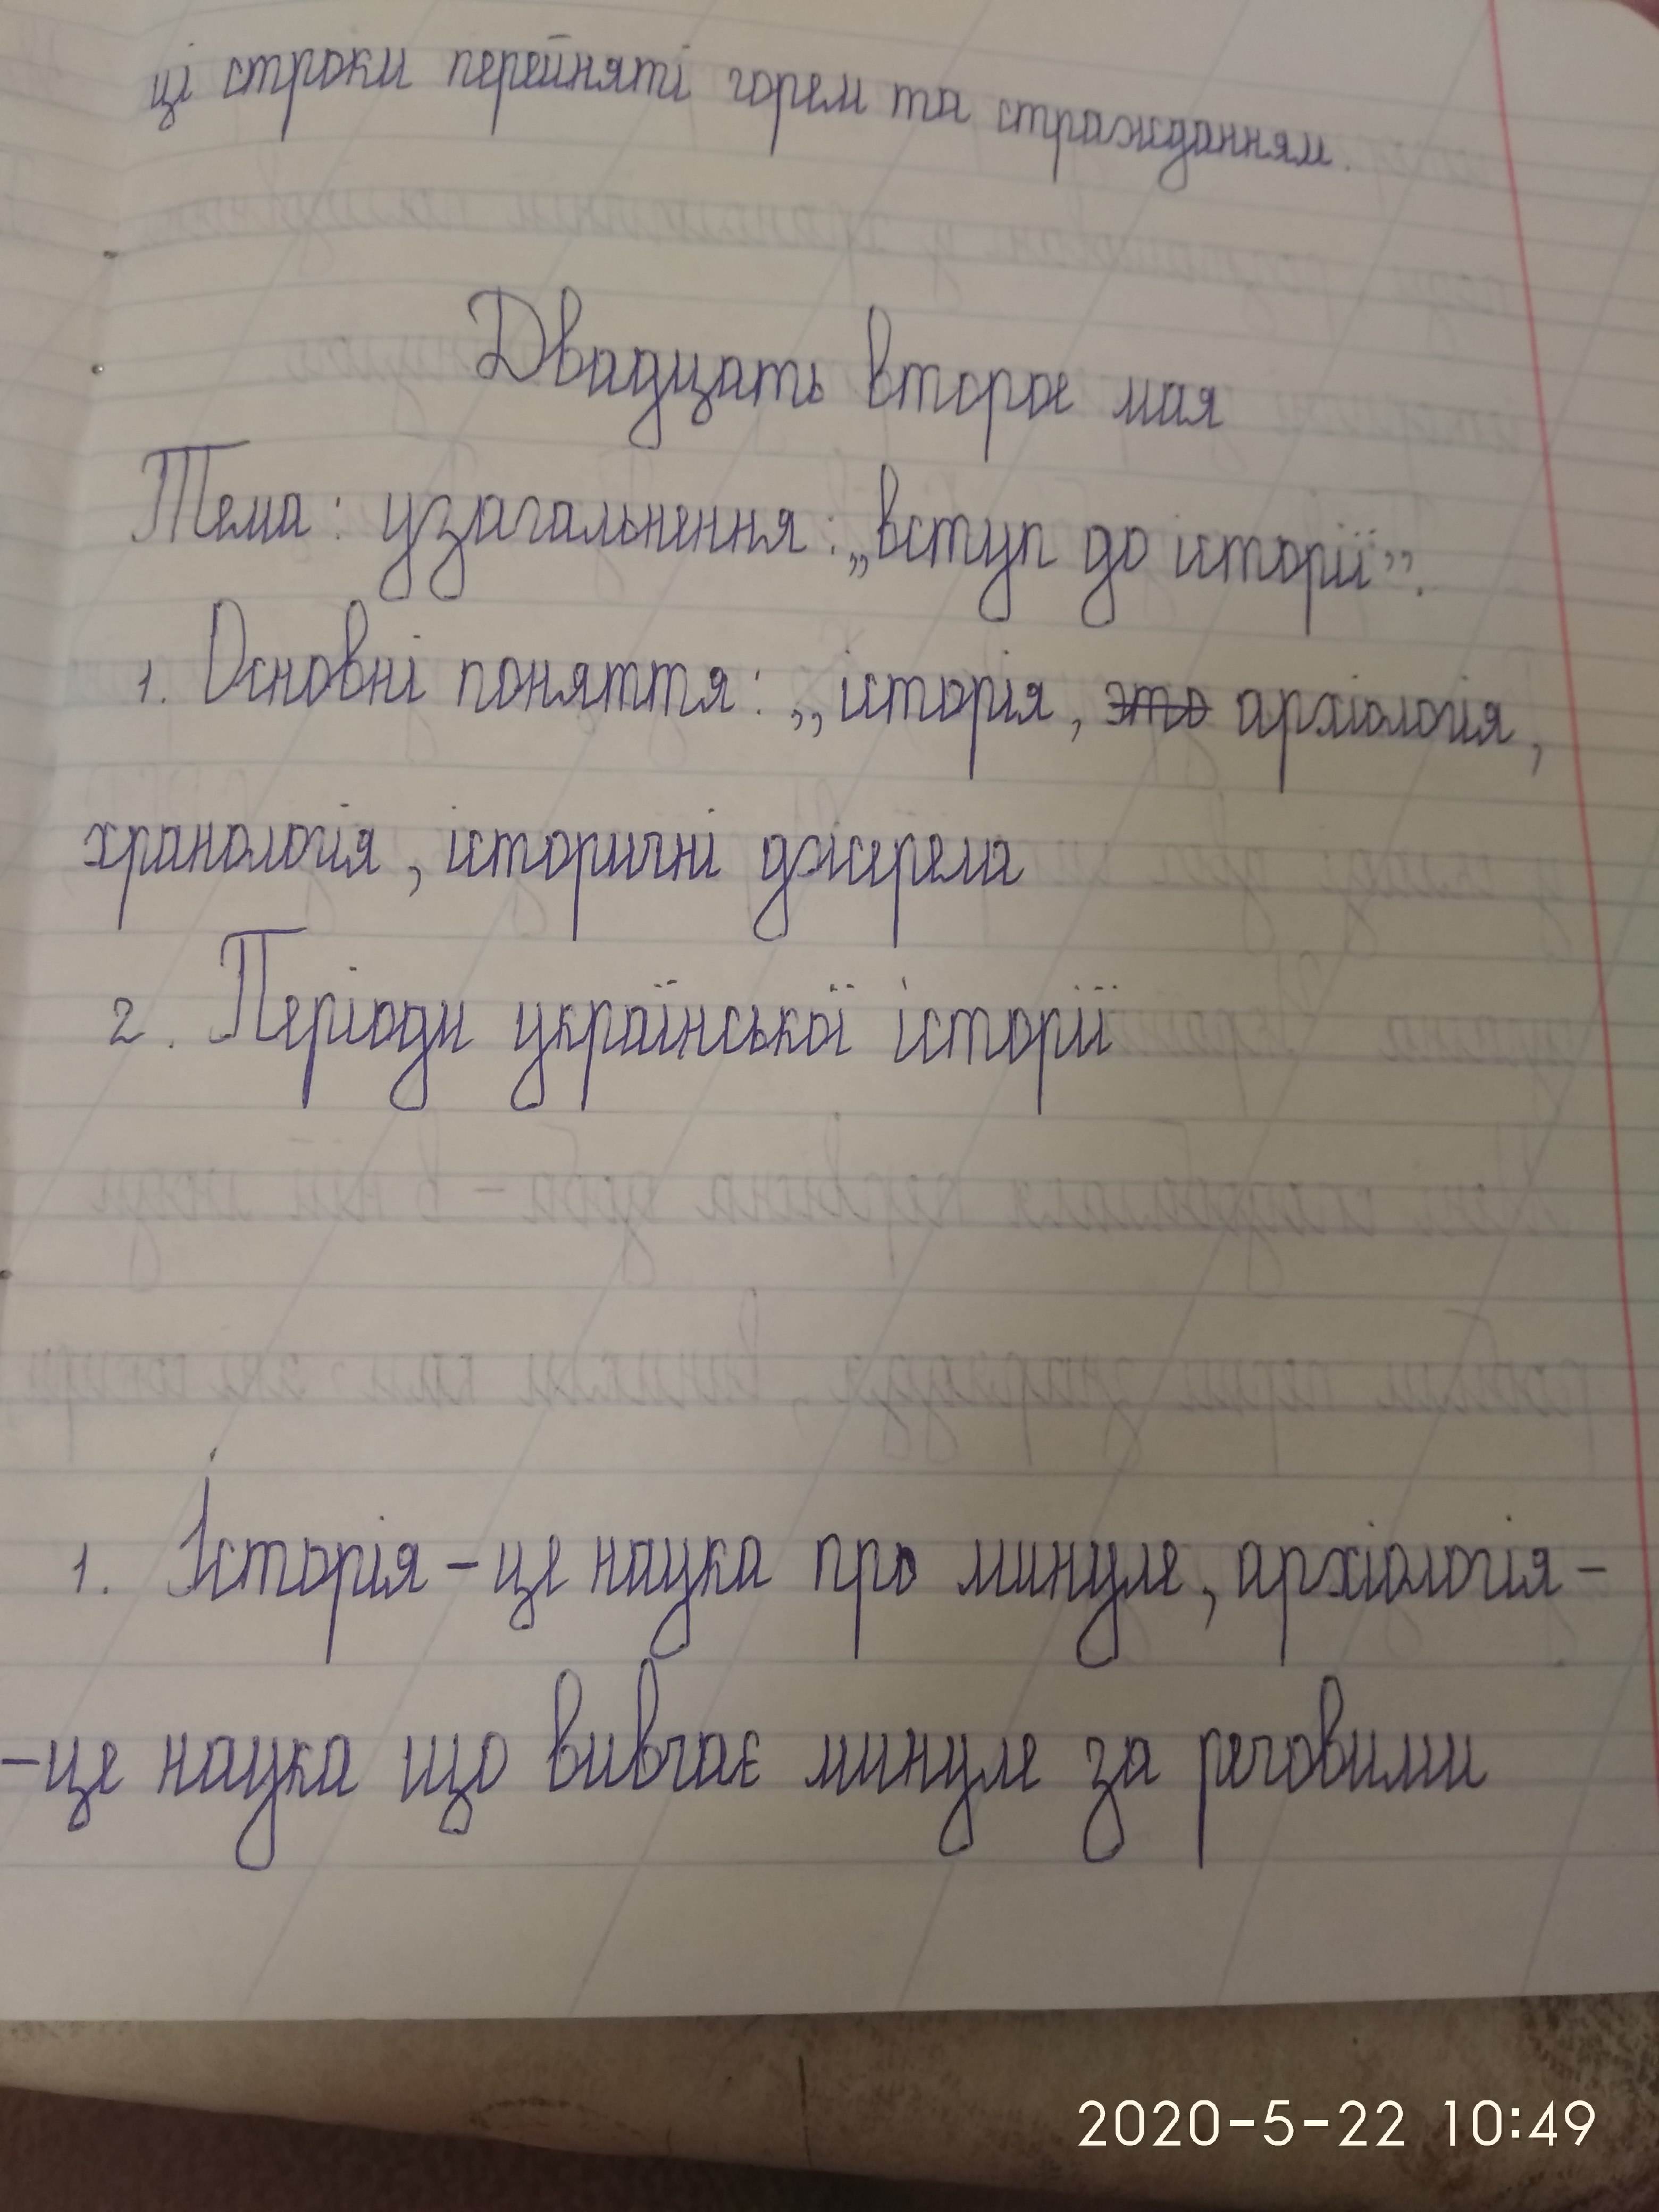 ці строки перейняті горем та стражданням.
Двадцать второе мая
Тема: узагальнення: „вступ до історії".
1. Основні поняття: „історія, это архіологія,
хранологія, історичні джерела
2. Періоди української історії
1. Історія - це наука про минуле, архіологія -
- це наука що вивчає минуле за речовими
2020-5-22 10:49